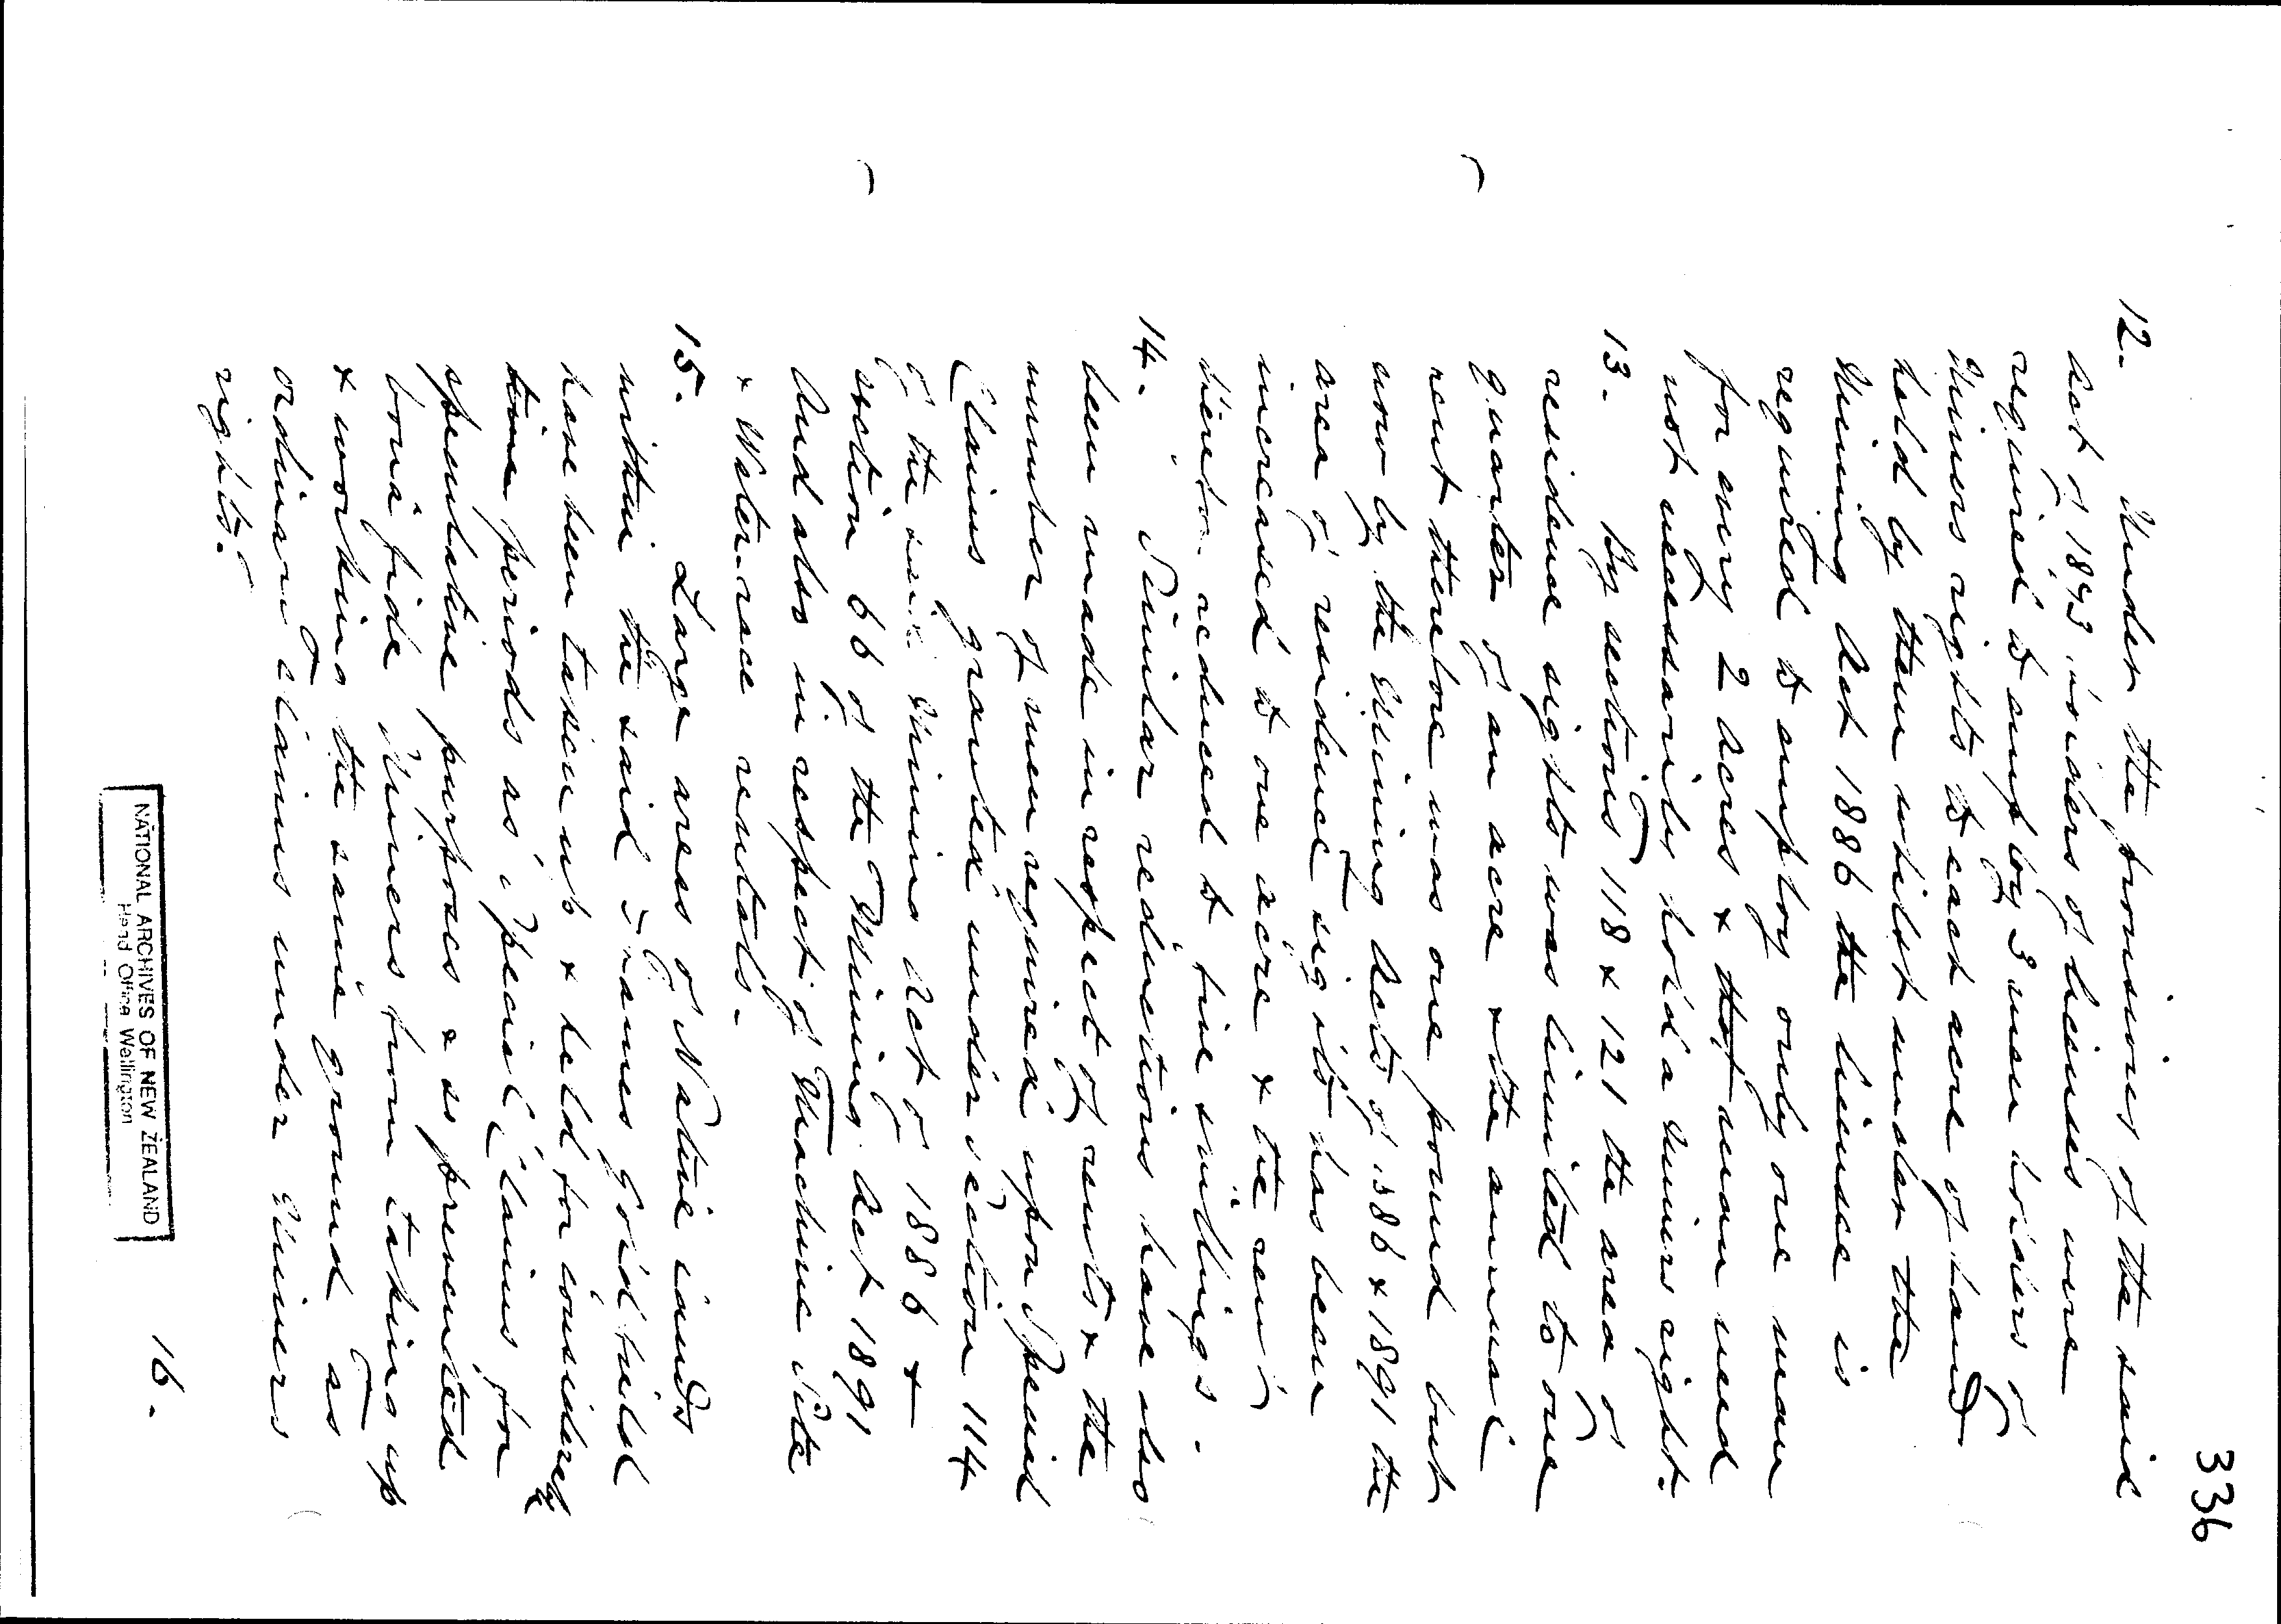 336
12. Under the provisions of the said
Act of 1873 holders of licenses were
required to employ 3 men holders of
Miners rights to each acre of land
held by them whilst under the
Mining Act 1886 the license is
required to employ only one man
for every 2 acres & that man need
not necessarily hold a Miners right.
13. By sections 118 & 121 the area of
residence sights was limited to one
quarter of an acre & the annual
rent therefore was one pound but
now by the Mining Acts of 1886 & 1891 the
area of residence sights has been
increased to one acre & the rent
thereto reduced to five shillings.
14. Similar reductions have also
been made in respect of rents & the
number of men required upon Special
Claims granted under section 114
of the said Mining Act of 1886 &
section 66 of the Mining Act 1891
And also in respect of Machine Site
& Water-race rentals.
15. Large areas of Native lands
within the said Graames Goldfield
have been taken up & held for considerable
time periods as Special Claims for
speculative purposes & so prevented
bonâ fide Miners from taking up
& working the same ground as
ordinary claims under Miners
rights.
16.
NATIONAL ARCHIVES OF NEW ZEALAND
Head Office Wellington